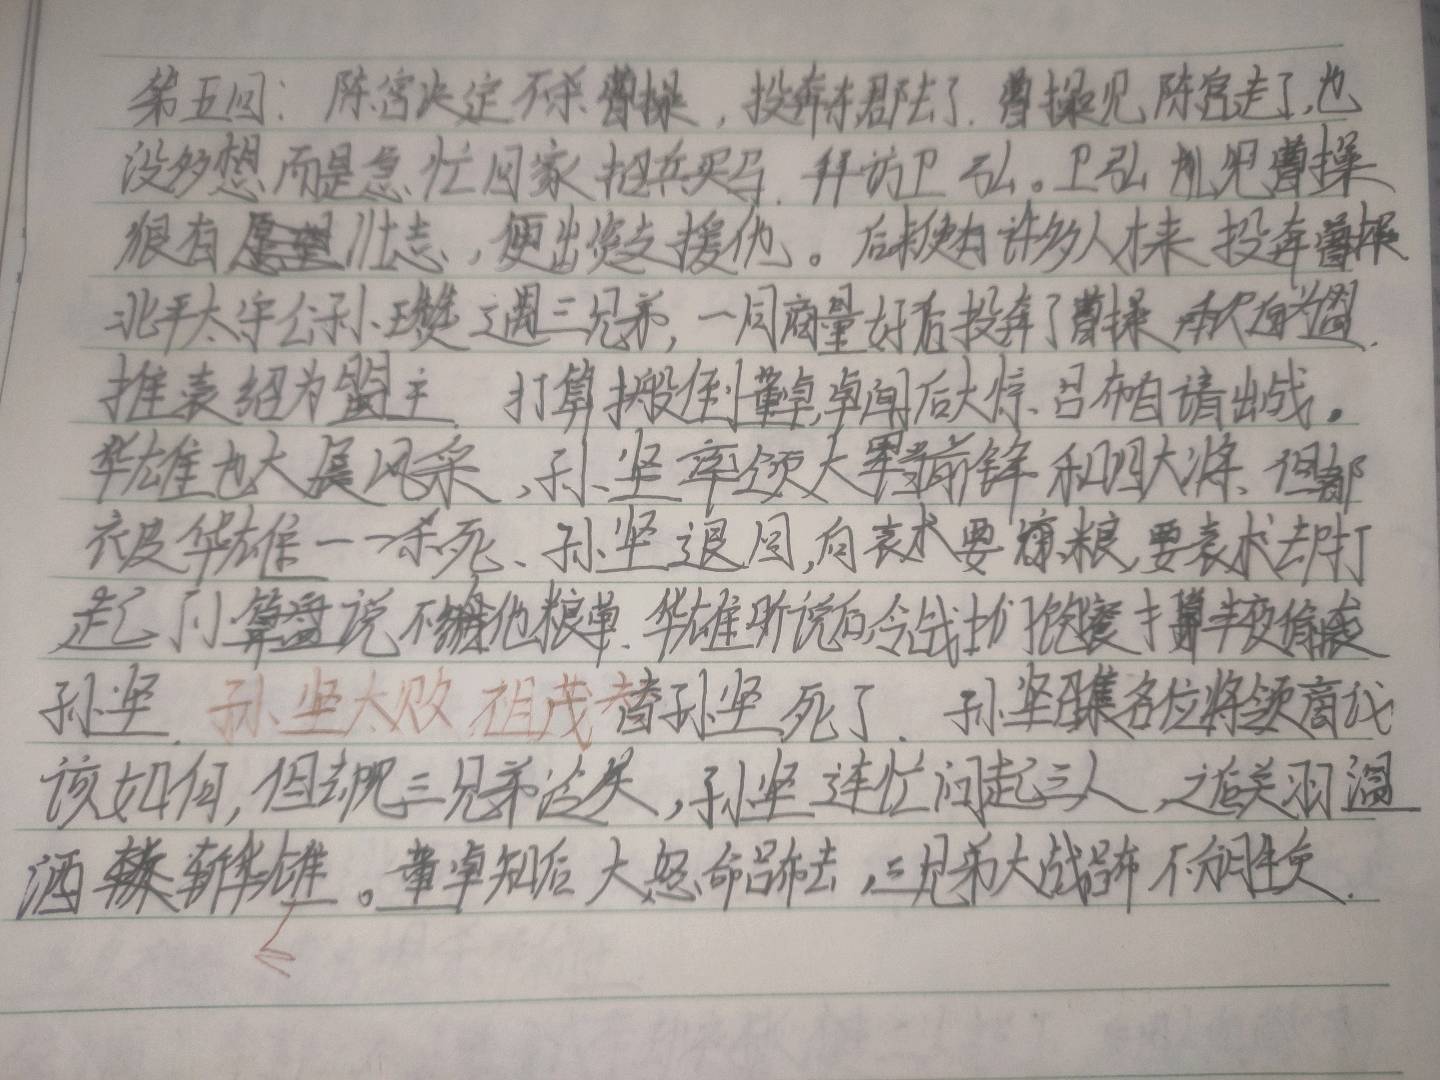 第五回：陈宫决定不杀曹操，投奔东郡去了.曹操见陈宫走了,也
没多想而是急忙回家招兵买马.拜访卫弘。卫弘 见曹操
很有 壮志,便出资支援他。后来便有许多人才来投奔曹操
北平太守公孙瓒遇三兄弟,一同商量好后投奔了曹操
推袁绍为盟主.打算扳倒董卓,卓闻后大惊、吕布自请出战。
华雄也大展风采,孙坚率领大军当前锋和四大将、但都
被华雄一一杀死、孙坚退回,向袁术要 粮,要袁术去却打
起了小算盘说不给他粮草.华雄听说后,令战士们饱餐打算半夜偷袭
孙坚.孙坚大败 祖茂 替孙坚死了.孙坚召集各位将领商议
该如何,但却见三兄弟 笑,孙坚连忙问起三人,之后关羽温
酒 斩华雄。董卓知后大怒命吕布去,三兄弟大战吕布不分胜负.